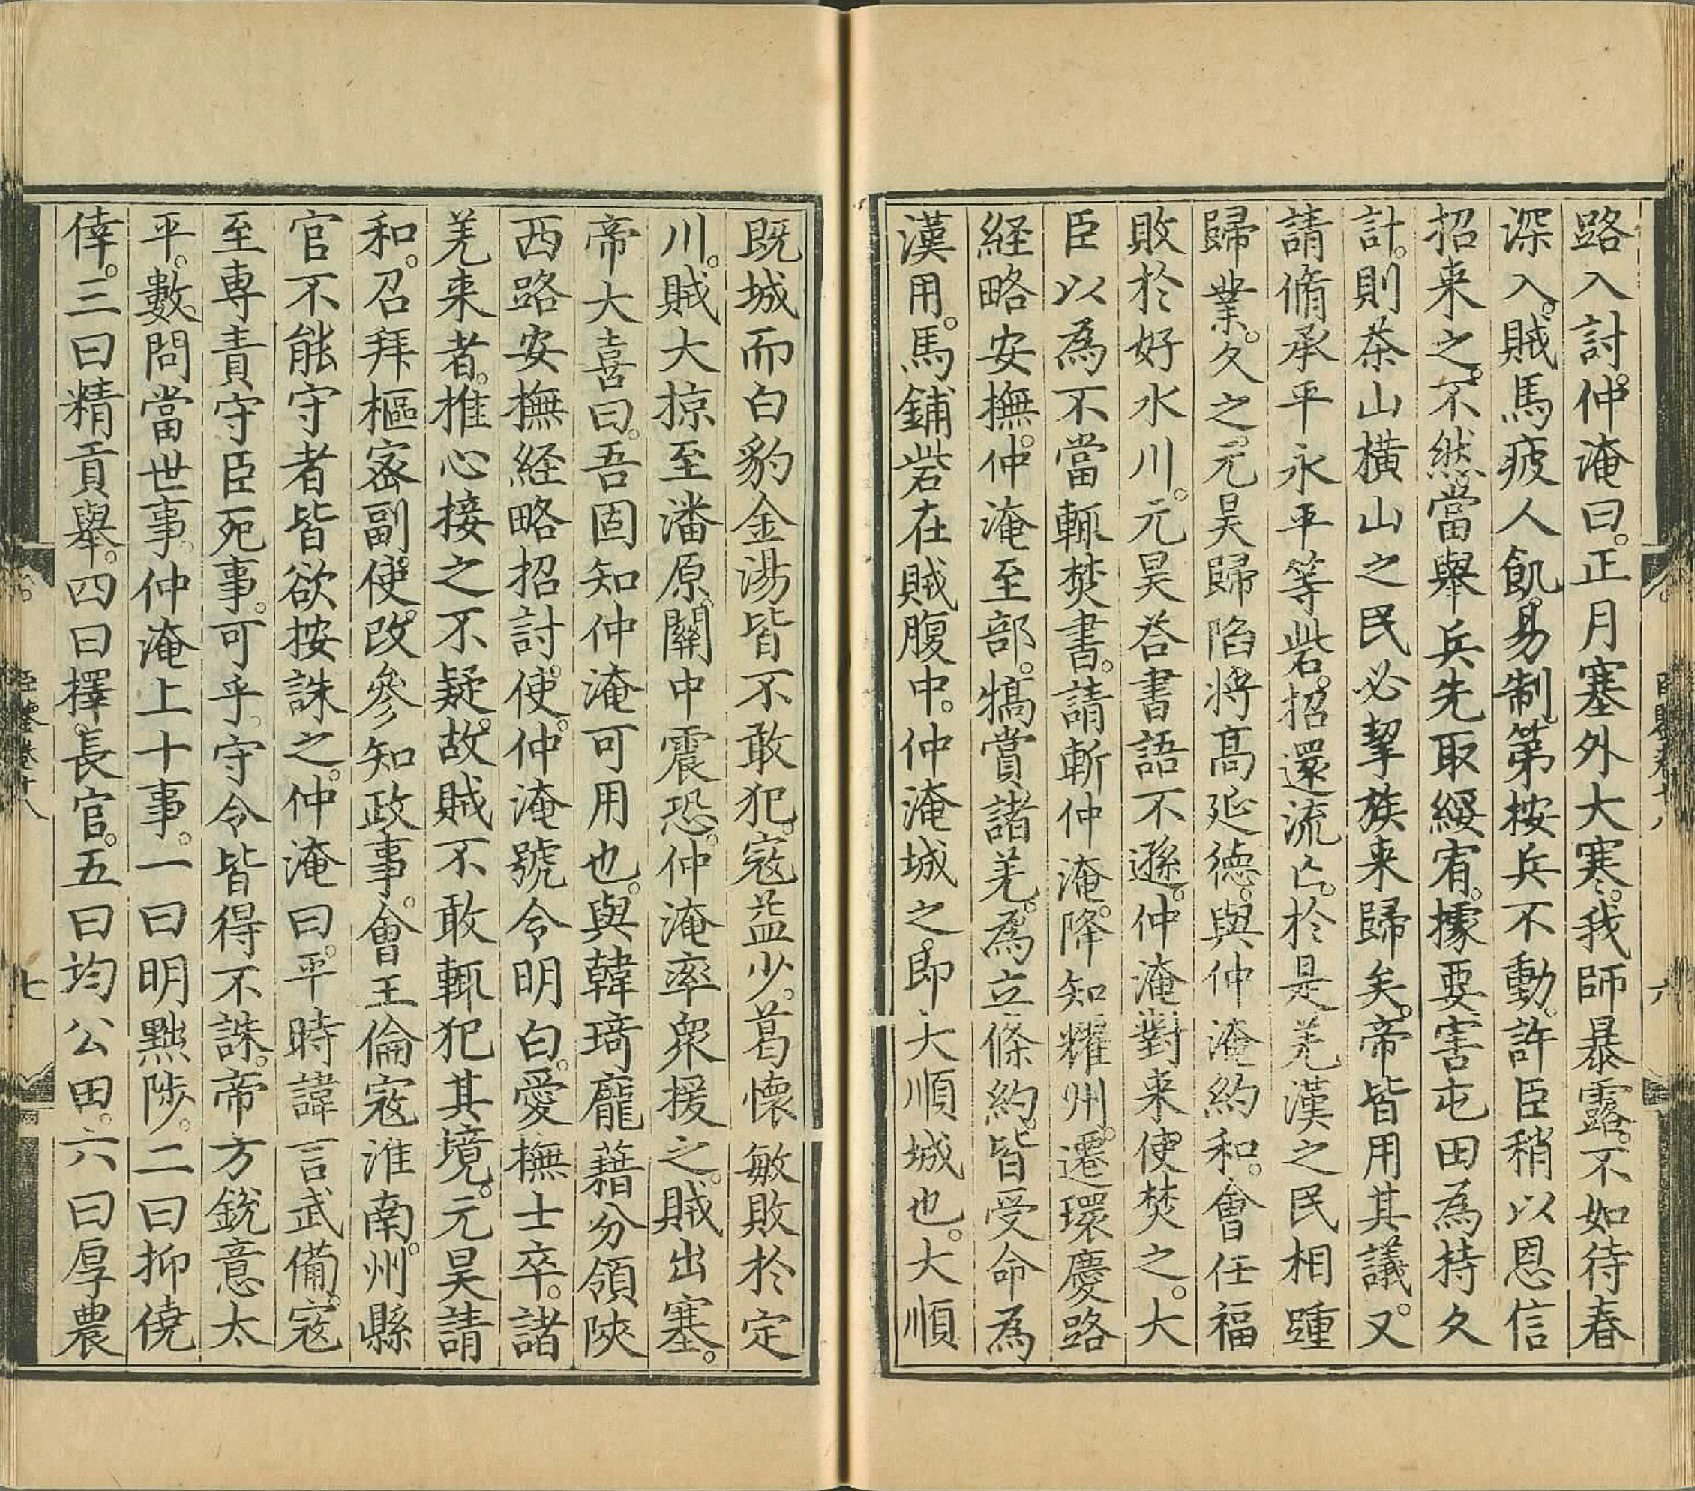 路入討。仲淹曰。正月塞外大寒。我師暴露。不如待春
深入。賊馬疲人飢。易制。第按兵不動。許臣稍以恩信
招来之。不然當舉兵先取綏宥。據要害屯田為持久
計。則茶山横山之民必挈族来歸矣。帝皆用其議。又
請脩承平永平等砦。招還流亡。於是羌漢之民相踵
歸業。久之。元昊歸陷将高延德。與仲淹約和。會任福
敗於好水川。元昊答書語不遜。仲淹對来使焚之。大
臣以為不當輒焚書。請斬仲淹。降知耀州。遷環慶路
経略安撫。仲淹至部。犒賞諸羌。為立條約。皆受命為
漢用。馬鋪砦在賊腹中。仲淹城之。即大順城也。大順
既城而白豹金湯皆不敢犯。寇益少。葛懷敏敗於定
川。賊大掠至潘原。關中震恐。仲淹率衆援之。賊出塞。
帝大喜曰。吾固知仲淹可用也。與韓琦龐藉分領陝
西路安撫経略招討使。仲淹號令明白。愛撫士卒。諸
羌来者。推心接之不疑。故賊不敢輒犯其境。元昊請
和。召拜樞宻副使。改參知政事。會王倫寇淮南。州縣
官不能守者皆欲按誅之。仲淹曰。平時諱言武備。寇
至専責守臣死事。可乎。守令皆得不誅。帝方銳意太
平。數問當世事。仲淹上十事。一曰明黜陟。二曰抑僥
倖。三曰精貢舉。四曰擇長官。五曰均公田。六曰厚農
七